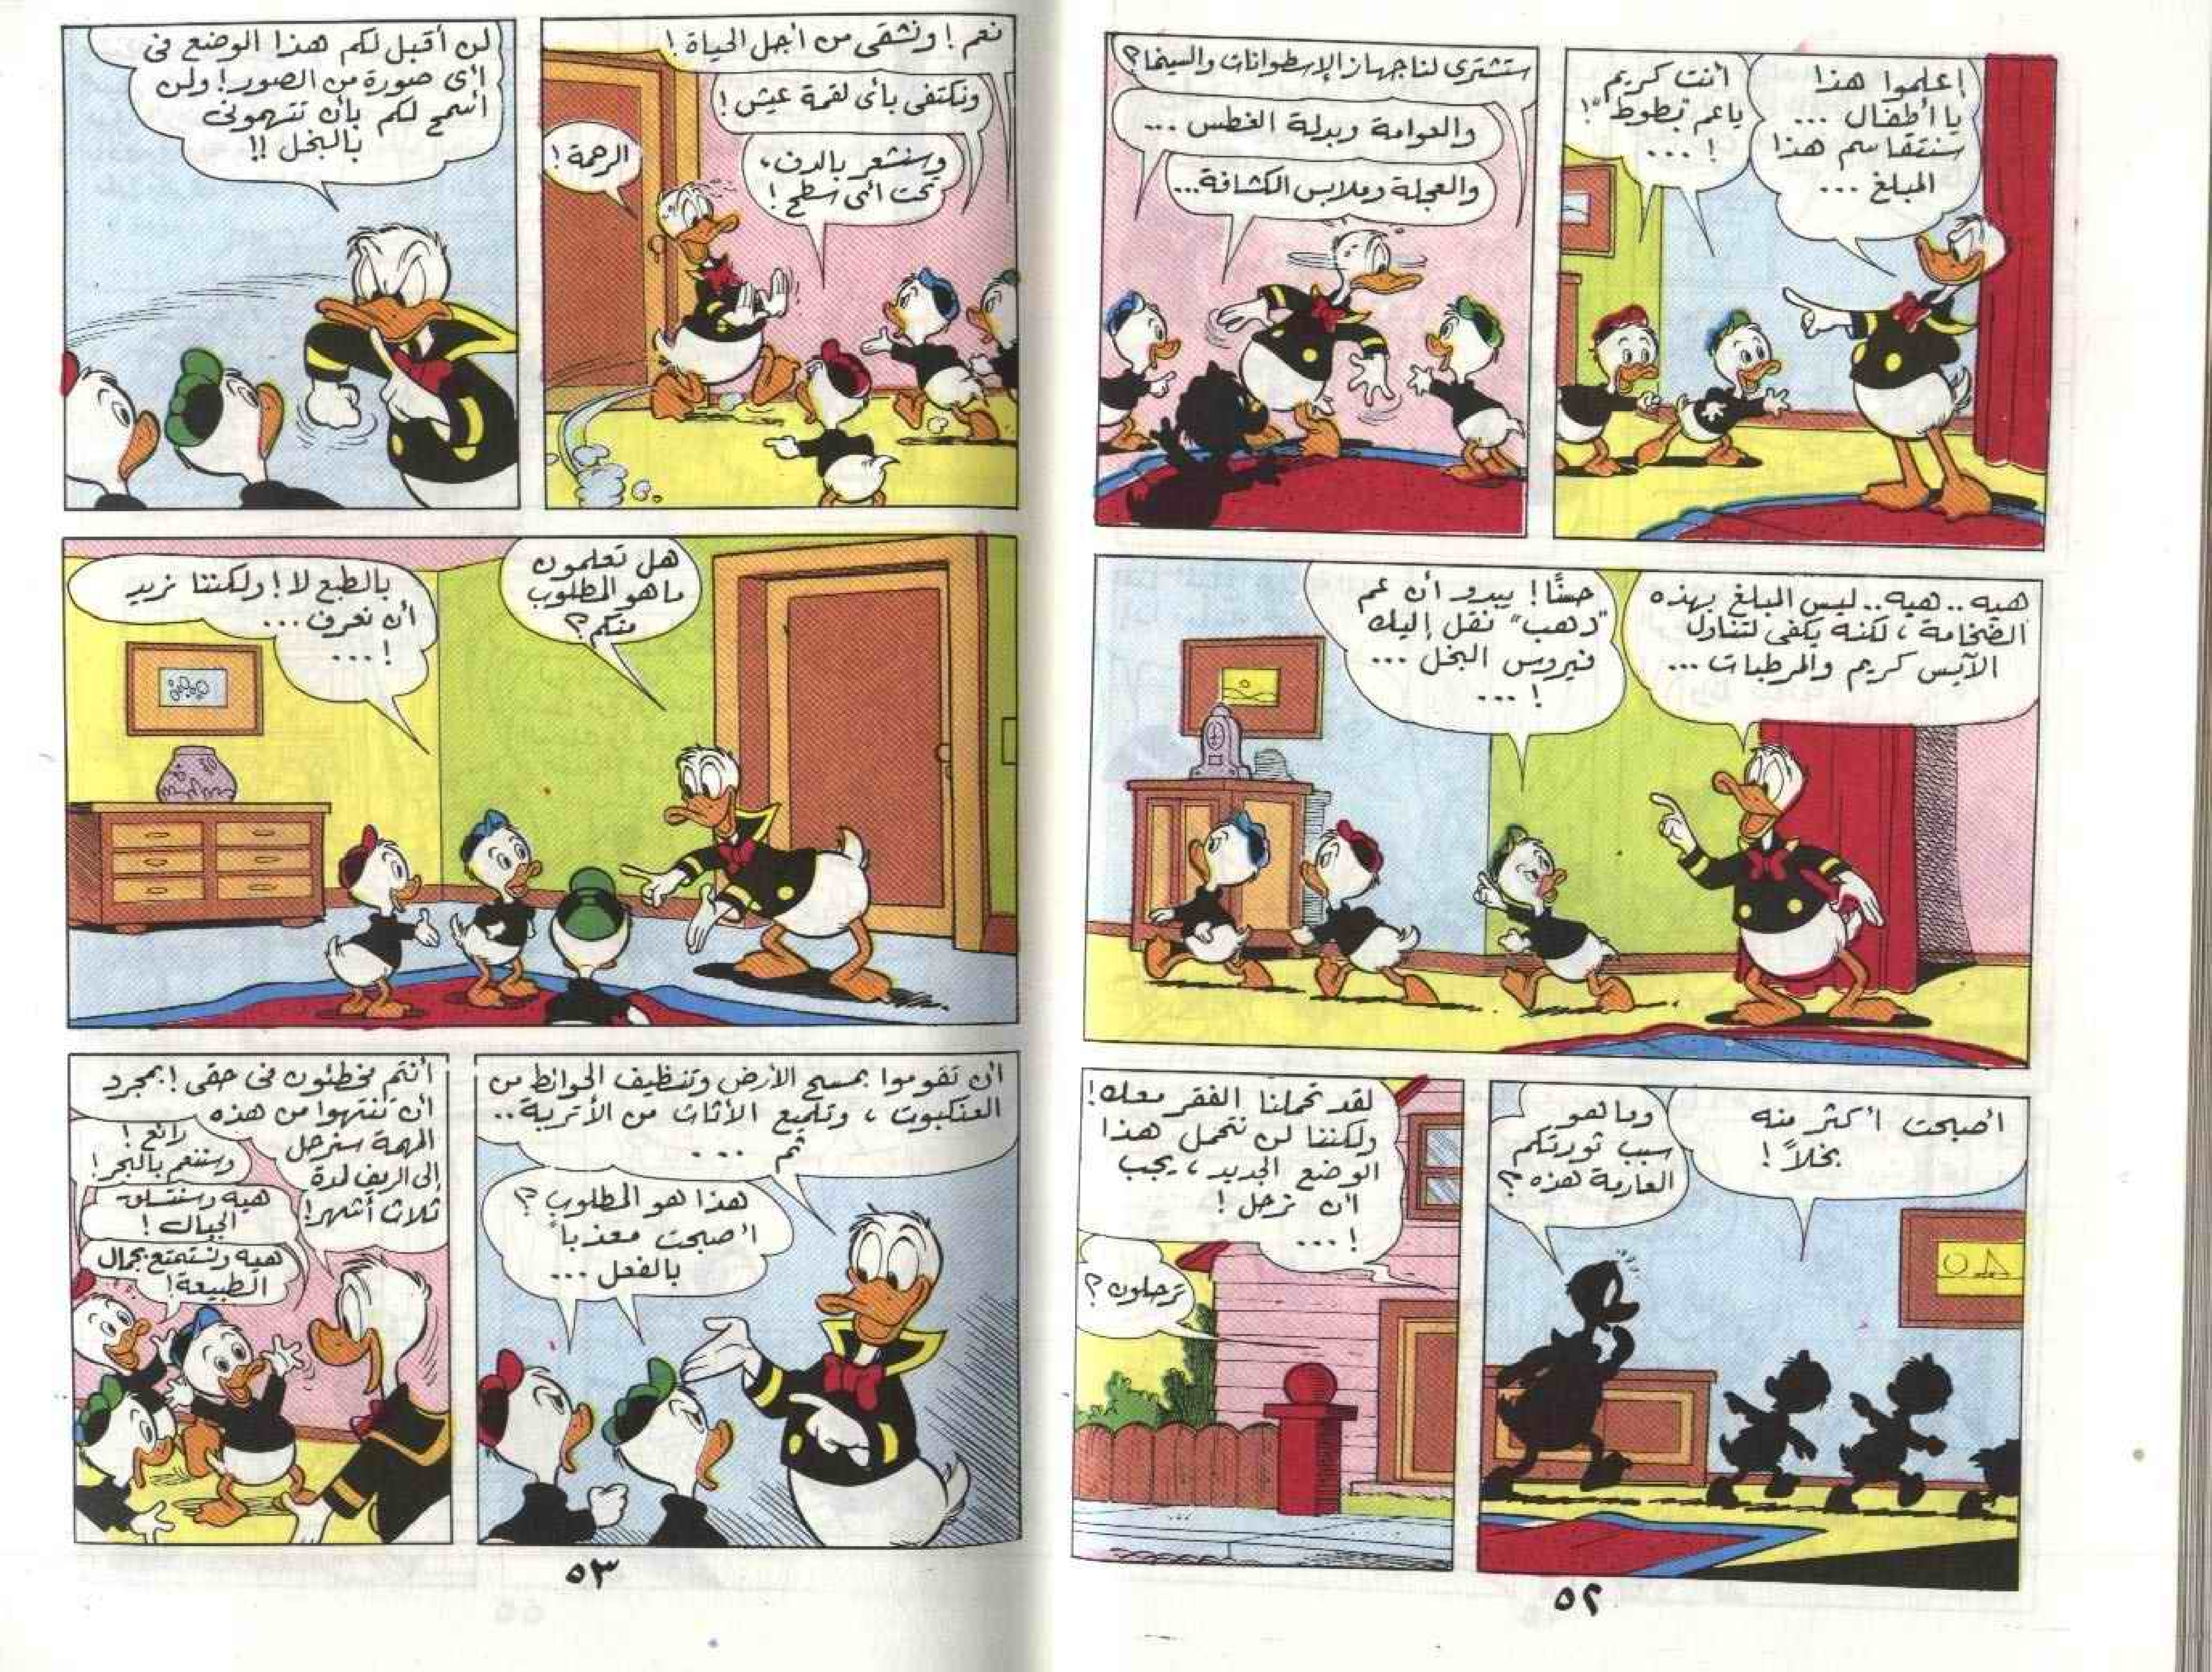 إعلموا هذا
يا أطفال ...
سنتقاسم هذا
المبلغ ...
أنت كريم
ياعم "بطوط"!
... !
ستشترى لنا جهاز الإسطوانات والسينما؟
والعوامة وبدلة الغطس ...
والعجلة وملابس الكشافة...
هيه .. هيه.. ليس المبلغ بهذه
الضخامة، لكنه يكفى لتناول
الآيس كريم والمرطبات ...
حسنًا! يبدو أن عم
"دهب" نقل إليك
فيروس البخل ...
... !
أصبحت أكثر منه
بخلاً!
وما هو
سبب ثورتكم
العارمة هذه؟
لقد تحملنا الفقر معك!
ولكننا لن نتحمل هذا
الوضع الجديد، يجب
أن نرحل!
... !
ترحلون؟
٥٢
نعم! ونشقى من أجل الحياة!
ونكتفى بأى لقمة عيش!
وسنشعر بالدفء
تحت أى سطح!
الرحمة!
لن أقبل لكم هذا الوضع فى
أى صورة من الصور! ولن
أسمح لكم بأن تتهمونى
بالبخل!!
هل تعلمون
ماهو المطلوب
منكم؟
بالطبع لا! ولكننا نريد
أن نعرف ...
... !
أن تقوموا بمسح الأرض وتنظيف الحوائط من
العنكبوت، وتلميع الأثاث من الأتربة..
ثم ...
هذا هو المطلوب؟
أصبحت معذباً
بالفعل ...
أنتم مخطئون فى حقى! بمجرد
أن تنتهوا من هذه
المهمة سنرحل
إلى الريف لمدة
ثلاث أشهر!
رائع!
وسننعم بالبحر!
هيه وسنتسلق
الجبال!
هيه ونستمتع بجمال
الطبيعة!
٥٣